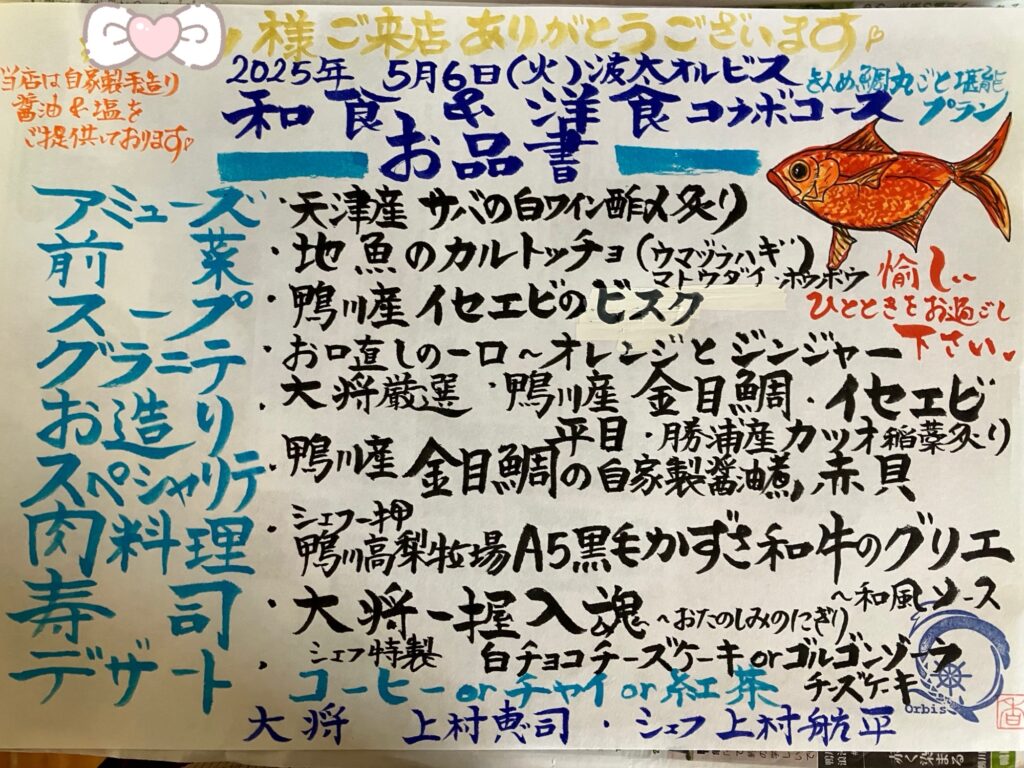 様ご来店ありがとうございます
2025年 5月6日(火)波太オルビス
当店は自家製手造り
醤油&塩を
ご提供しております
和食&洋食コラボコース
きんめ鯛丸ごと堪能
プラン
お品書
アミューズ ・天津産 サバの白ワイン酢〆炙り
前菜 ・地魚のカルトッチョ(ウマヅラハギ)
マトウダイ・ホウボウ
愉しい
ひとときをお過ごし
下さい
スープ ・鴨川産イセエビのビスク
グラニテ ・お口直しの一口~オレンジとジンジャー
お造り ・大将厳選・鴨川産 金目鯛・イセエビ
平目・勝浦産カツオ稲藁炙り
スペシャリテ ・鴨川産 金目鯛の自家製醤油煮,赤貝
シェフ一押
肉料理 ・鴨川高梨牧場A5黒毛かずさ和牛のグリエ
~和風ソース
寿司 ・大将一握入魂~おたのしみのにぎり
デザート ・シェフ特製 白チョコチーズケーキorゴルゴンゾーラ
チーズケーキ
コーヒーorチャイor紅茶
Orbis
大将 上村恵司・シェフ 上村航平